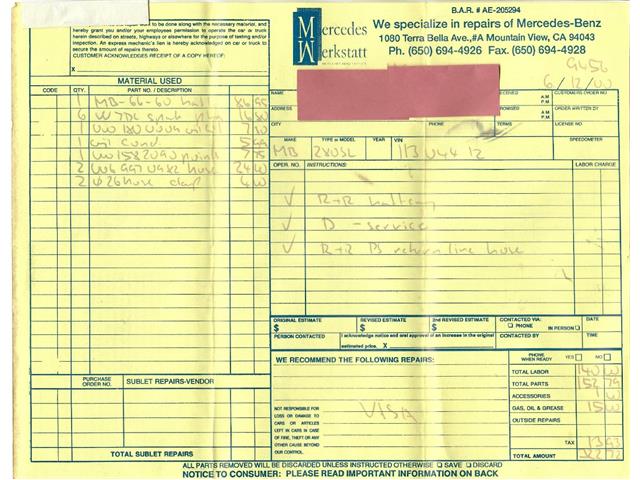 B.A.R. # AE-205294
Mercedes Werkstatt
We specialize in repairs of Mercedes-Benz
1080 Terra Bella Ave.,#A Mountain View, CA 94043
Ph. (650) 694-4926 Fax. (650) 694-4928
work to be done along with the necessary material, and
hereby grant you and/or your employees permission to operate the car or truck
herein described on streets, highways or elsewhere for the purpose of testing and/or
inspection. An express mechanic's lien is hereby acknowledged on car or truck to
secure the amount of repairs thereto.
CUSTOMER ACKNOWLEDGES RECEIPT OF A COPY HEREOF:
X
9456
6/12/00
NAME
CUSTOMERS ORDER NO.
A.M.
P.M.
ADDRESS
ORDER WRITTEN BY
A.M.
P.M.
CITY
PHONE
TERMS
LICENSE NO.
MAKE
TYPE or MODEL
YEAR
VIN
SPEEDOMETER
MB 280SL 113 044 12
MATERIAL USED
CODE
QTY.
PART NO. / DESCRIPTION
1
6
1
1 coil Cond.
1 points
2 hose 24
2 hose clamp 4
OPER. NO.
INSTRUCTIONS:
LABOR CHARGE
R+R battery
D - service
R+R PS return line hose
ORIGINAL ESTIMATE
$
REVISED ESTIMATE
$
REVISED ESTIMATE
$
CONTACTED VIA:
PHONE
IN PERSON
DATE
PERSON CONTACTED
I acknowledge notice and oral approval of an increase in the original
estimated price. X
CONTACTED BY
TIME
WE RECOMMEND THE FOLLOWING REPAIRS:
PHONE WHEN READY
YES
NO
TOTAL LABOR 140
TOTAL PARTS 152 79
ACCESSORIES
GAS, OIL & GREASE 15
OUTSIDE REPAIRS
TAX 13 93
TOTAL AMOUNT 322 72
VISA
NOT RESPONSIBLE FOR
LOSS OR DAMAGE TO
CARS OR ARTICLES
LEFT IN CARS IN CASE
OF FIRE, THEFT OR ANY
OTHER CAUSE BEYOND
OUR CONTROL.
PURCHASE ORDER NO.
SUBLET REPAIRS-VENDOR
TOTAL SUBLET REPAIRS
ALL PARTS REMOVED WILL BE DISCARDED UNLESS INSTRUCTED OTHERWISE SAVE DISCARD
NOTICE TO CONSUMER: PLEASE READ IMPORTANT INFORMATION ON BACK